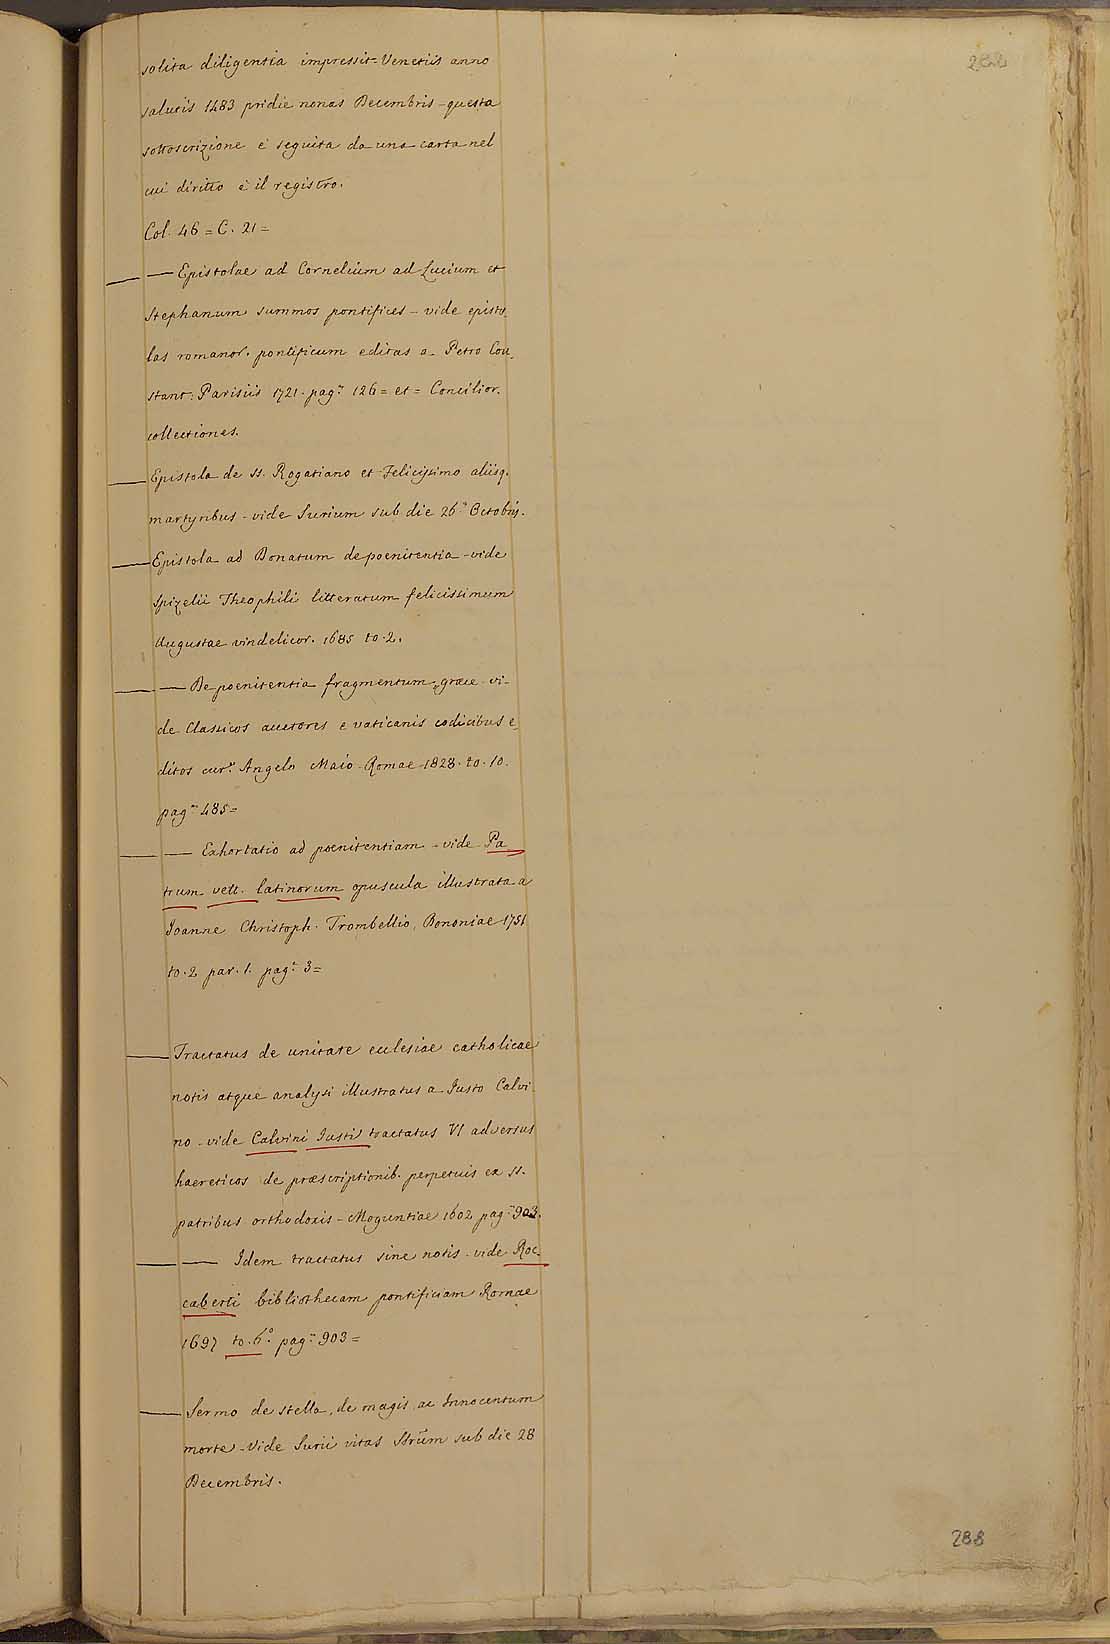 288
solita diligentia impressit = Venetiis anno
salutis 1483 pridie nonas Decembris - questa
sottoscrizione è seguita da una carta nel
cui diritto è il registro.
Col. 46 = C. 21 =
— — Epistolae ad Cornelium ad Lucium et
Stephanum summos pontifices - vide episto-
las romanor. pontificum editas a Petro Cou-
stant: Parisiis 1721. pag.ª 126 = et = Concilior.
collectiones.
— Epistola de ss. Rogatiano et Felicissimo aliisq.
martyribus - vide Surium sub die 26.ª Octobris.
— Epistola ad Donatum de poenitentia - vide
Spizelii Theophili litteratum felicissimum
Augustae vindelicor. 1685 to. 2.
— — De poenitentia fragmentum, graece - vi-
de Classicos auctores e vaticanis codicibus e-
ditos cur.e Angelo Maio - Romae 1828. to. 10.
pag.ª 485 =
— — Exhortatio ad poenitentiam - vide Pa-
trum vett. latinorum opuscula illustrata a
Joanne Christoph. Trombellio, Bononiae 1751
to. 2 par. 1. pag.ª 3 =
— Tractatus de unitate ecclesiae catholicae
notis atque analysi illustratus a Justo Calvi-
no - vide Calvini Justi tractatus VI adversus
haereticos de praescriptionib. perpetuis ex ss.
patribus orthodoxis - Moguntiae 1602 pag.ª 903.
— — Idem tractatus sine notis - vide Roc-
caberti bibliothecam pontificiam Romae
1697 to. 6.º pag.ª 903 =
— Sermo de stella, de magis, ac Innocentum
morte - Vide Surii vitas Strũm sub die 28
Decembris.
288